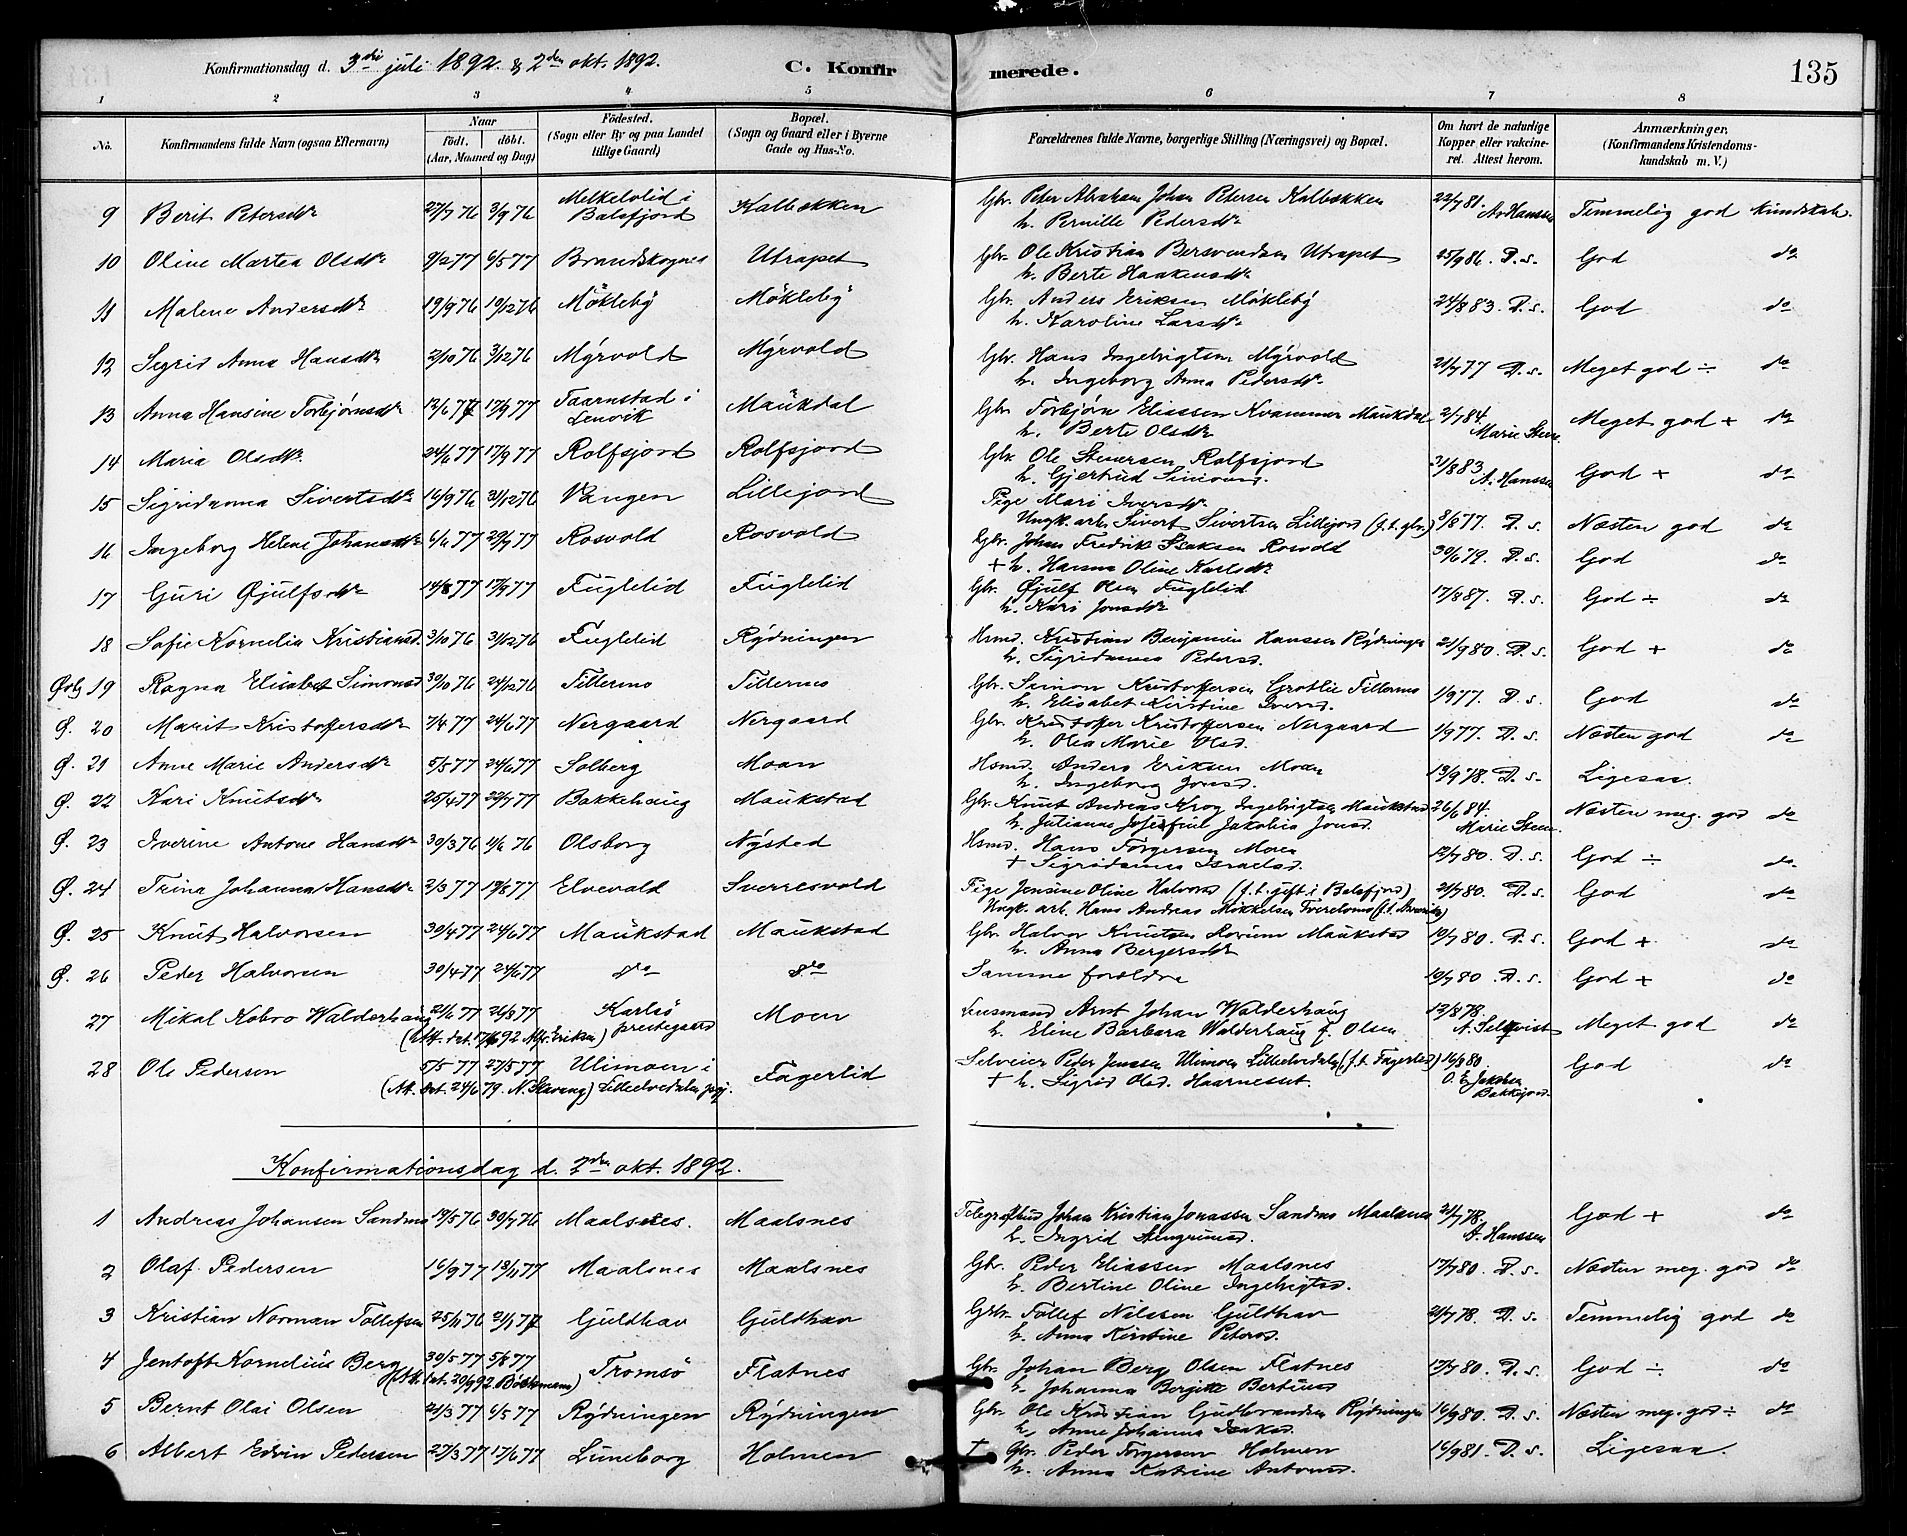 Konfirmationsdag d. 3die juli 1892. & 2den okt. 1892. C. Konfirmerede. 135
1 2 3 4 5 6 7 8
No. Konfirmandens fulde Navn (ogsaa Efternavn) Naar Födt. döbt. (Aar, Maaned og Dag) Födested. (Sogn eller By og paa Landet tillige Gaard) Bopæl. (Sogn og Gaard eller i Byerne Gade og Hus-No. Forældrenes fulde Navne, borgerlige Stilling (Næringsvei) og Bopæl. Om havt de naturlige Kopper eller vakcineret. Attest herom. Anmærkninger. (Konfirmandens Kristendomskundskab m. V.)
9 Berit Petersdr 27/7 76 3/9 76 Melkelolid i Balsfjord Kalbækken Gbr. Peter Abraham Johan Petersen Kalbækken 22/7 81. A. Hanssen Temmelig god kundskab.
h. Pernille Pedersdr
10 Oline Martea Olsdr 9/2 77 6/5 77 Brandskognes Utrapet Gbr. Ole Kristian Bersvendsen Utrapet 25/9 86. D. s. God do
h. Berte Haakensdr
11 Malene Andersdr 19/9 76 10/12 76 Mökleby Mökleby Gbr. Anders Eriksen Mökleby 24/8 83. D. s. God do
h. Karoline Larsdr
12 Sigrid Anna Hansdr 2/10 76 3/12 76 Myrvold Myrvold Gbr. Hans Ingebrigtsen Myrvold 21/7 77 D. s. Meget god ÷ do
h. Ingeborg Anna Pedersdr
13 Anna Hansine Torbjørnsdr 12/6 77 17/9 77 Taarnstad i Lenvik Maukdal Gbr Torbjørn Eliassen Kvammen Maukdal 2/7 84. Marie Steen Meget god + do
h. Berte Olsdr
14 Maria Olsdr. 24/6 77 17/9 77 Rolfsjord Rolfsjord Gbr. Ole Steversen Rolfsjord 31/8 83. A. Hanssen God + do
h. Gjertrud Simonsd.
15 Sigridanna Sivertsdr 16/9 76 31/12 76 Vangen Lillejord Pige Mari Iversdr
Ungk. arb. Sivert Sivertsen Lillejord (f. t. gbr.) 8/8 77. D. s. Næsten god do
16 Ingeborg Helene Johansdr 6/6 77 29/7 77 Rosvold Rosvold Gbr. Johan Fredrik Isaksen Rosvold 30/6 79. D. s. God do
+ h. Hanna Oline Karlsdr
17 Guri Øjulfsdr 14/8 77 17/9 77 Fuglelid Fuglelid Gbr. Øjulf Olsen Fuglelid 17/8 87. D. s. God ÷ do
h. Kari Jonsdr
18 Sofie Kornelia Kristiansd. 3/10 76 31/12 76 Fuglelid Rydningen Hsmd. Kristian Benjamin Hanssen Rydningen 21/9 80. D. s. God + do
h. Sigridanna Pedersd.
Øvbg 19 Ragna Elisabet Simonsd 30/10 76 24/12 76 Tillermo Tillermo Gbr. Simon Kristoffersen Grotlie Tillermo 1/9 77. D. s. God do
h. Elisabet Kirstine Iversd.
Ø. 20 Marit Kristoffersdr 7/4 77 24/6 77 Nergaard Nergaard Gbr. Kristoffer Kristoffersen Nergaard 1/9 77. D. s. Næsten god do
h. Olea Marie Olsd.
Ø. 21 Anne Marie Andersdr 5/5 77 24/6 77 Solberg Moen Hsmd. Anders Eriksen Moen 13/9 78. D. s. Ligesaa.
h. Ingeborg Jonsd.
Ø. 22 Kari Knutsdr 25/4 77 22/7 77 Bakkehaug Maukstad Gbr. Knut Andreas Krog Ingebrigtsen Maukstad 26/6 84. Marie Steen. Næsten meg. god do
h. Julianna Josefine Jakobia Jonsd.
Ø. 23 Iverine Antone Hansdr 30/3 76 1/6 76 Olsborg Nysted Hsmd. Hans Torgersen Moen 12/7 80. D. s. God ÷ do
+ Sigridanna Israelsd.
Ø. 24 Trina Johanna Hansdr 2/3 77 19/8 77 Elvevold Sverresvold Pige Jensine Oline Halvorsd (f. t. gift i Balsfjord) 21/7 80. D. s. God do
Ungk. arb. Hans Andreas Mökkelsen Tverelvmo (f. t. Amerika)
Ø. 25 Knut Halvorsen 30/4 77 24/6 77 Maukstad Maukstad Gbr. Halvor Knutsen Maukstad 10/7 80. D. s. God + do
h. Anna Bergersdr
Ø. 26 Peder Halvorsen 30/4 77 24/6 77 do do Samme forældre 10/7 80 D. s. God + do
27 Mikal Kobro Walderhaug 21/6 77 26/8 77 Karlsö prestegaard Moen Lensmand Arnt Johan Walderhaug 12/8 78. Meget god do
(Att. dat. 17/6 92 Alfr. Eriksen) h. Eline Barbara Walderhaug f. Olsen
28 Ole Pedersen 5/5 77 27/5 77 Ulimoen i Lilleelvedalen pgj. Fagerlid Selveier Peder Jenssen Ulimoen Lilleelvedalen (f. t. Fagerlid) 16/9 80. O. E. Jakobsen Bakkejord God do
(Att. dat. 24/6 79. N. Skavang) + h. Sigrid Olsd. Haarnesset.
Konfirmationsdag d. 2den okt. 1892.
1 Andreas Johansen Sandmo 19/5 76 30/7 76 Maalsnes. Maalsnes Telegrafbud Johan Kristian Jonassen Sandmo Maalsnes 21/7 78. A. Hanssen God + do
h. Ingrid Arngrimsd.
2 Olaf Pedersen 16/9 77 13/11 77 Maalsnes Maalsnes Gbr. Peder Eliassen Maalsnes 17/7 80. D. s. Næsten meg. god do
h. Bertine Oline Ingebrigtsd.
3 Kristian Norman Tollefsen 25/11 76 21/1 77 Guldhav Guldhav Gbr. Tollef Nilssen Guldhav 21/7 78. D. s. Temmelig god do
h. Anna Kirstine Petersd.
4 Jentoft Kornelius Berg 30/5 77 5/8 77 Tromsö Flatnes Gbr. Johan Berg Olsen Flatnes 17/7 80. D. s. God ÷ do
(Att. dat. 20/9 92. Böckmann) h. Johanna Bergitte Bertinusd
5 Bernt Olai Olsen 21/3 77 6/5 77 Rydningen Rydningen Gbr. Ole Kristian Gudbrandsen Rydningen 16/9 80. D. s. Næsten meg. god ÷ do
h. Anne Johanna Isaksd.
6 Albert Edvin Pedersen 27/3 77 17/6 77 Luneborg Holmen + Gbr. Peder Torgersen Holmen 16/9 81. D. s. Ligesaa.
h. Anna Katrine Antonsd.